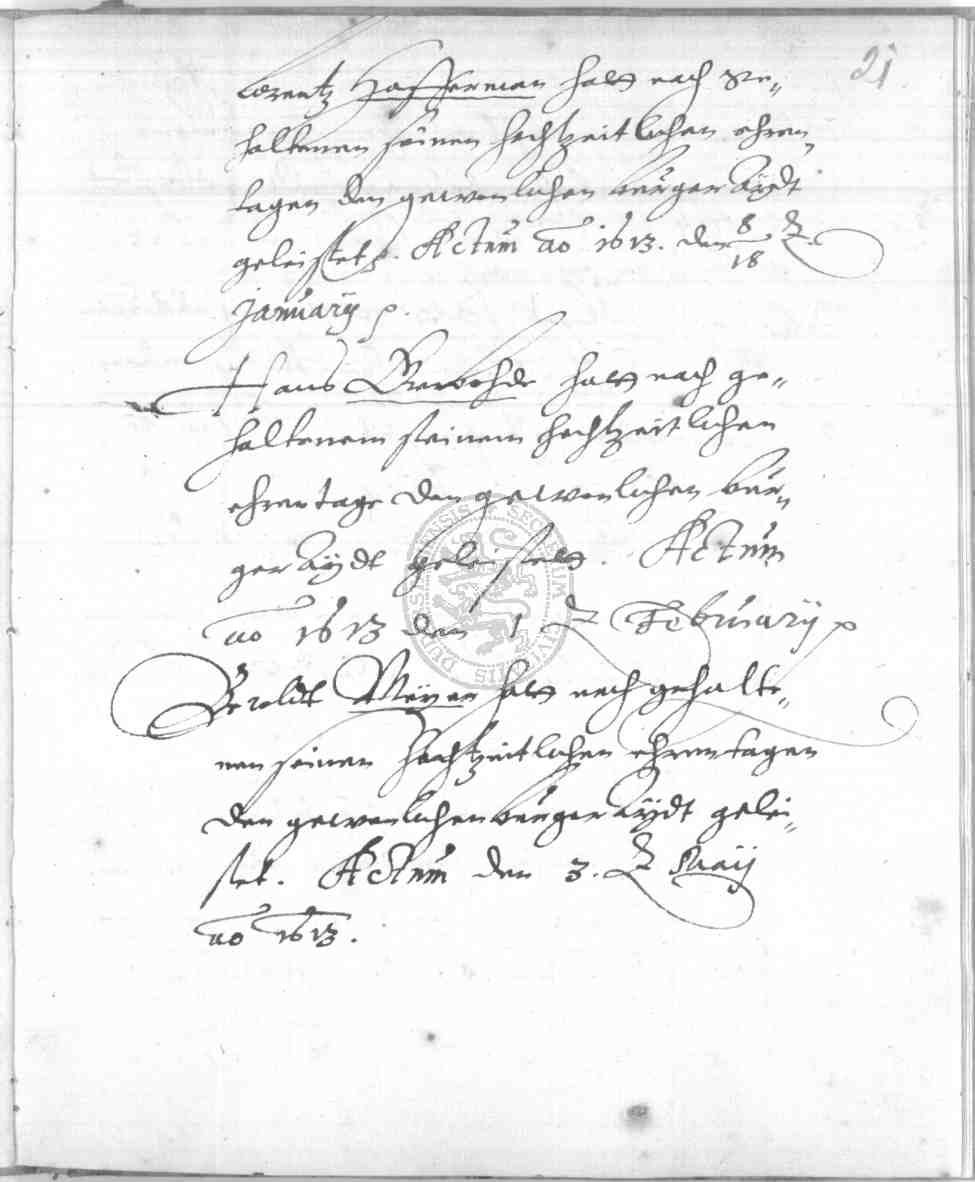 21
Lorentz Hafferman hatt nach ge-
haltenen seinen hochtzeitlichen ehren
tagen den gewonlichen burger Aydt
geleistet. Actum ao 1613. den 8/18
January.
Hans hatt nach ge-
haltenem seinem hochtzeitlichen
ehrentage den gewonlichen bur-
ger Aydt geleistett. Actum
ao 1613 den 1 February
Beroldt Meyer hatt nach gehalte-
nen seinen hochtzeitlichen ehrentagen
den gewonlichen burger Aydt gelei-
stet. Actum den 3. Maij
ao 1613.